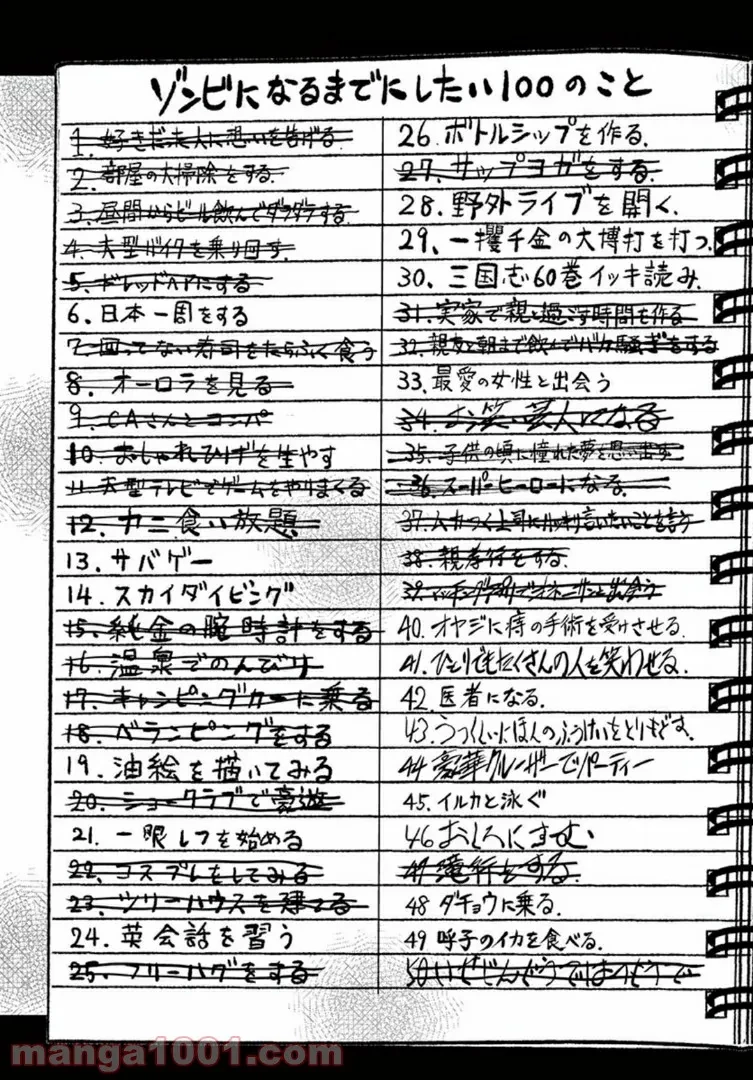 ゾンビになるまでにしたい100のこと
1. 好きだった人に想いを告げる.
2. 部屋の大掃除をする.
3. 昼間からビール飲んでダラダラする.
4. 大型バイクを乗り回す.
5. ドレッドヘアにする
6. 日本一周をする
7. 回ってない寿司をたらふく食う
8. オーロラを見る
9. CAさんとコンパ
10. おしゃれひげを生やす
11. 大型テレビでゲームをやりまくる
12. カニ食い放題
13. サバゲー
14. スカイダイビング
15. 純金の腕時計をする
16. 温泉でのんびり
17. キャンピングカーに乗る
18. ベランピングをする
19. 油絵を描いてみる
20. ショークラブで豪遊
21. 一眼レフを始める
22. コスプレをしてみる
23. ツリーハウスを建てる
24. 英会話を習う
25. フリーハグをする
26. ボトルシップを作る.
27. サップヨガをする.
28. 野外ライブを開く.
29. 一攫千金の大博打を打つ.
30. 三国志60巻イッキ読み.
31. 実家で親と過ごす時間を作る
32. 親友と朝まで飲んでバカ騒ぎをする
33. 最愛の女性と出会う
34. お笑い芸人になる
35. 子供の頃に憧れた夢を思い出す
36. スーパーヒーローになる.
37. ムカつく上司にハッキリ言いたいことを言う
38. 親孝行をする.
39.
40. オヤジに痔の手術を受けさせる.
41. ひとりでもたくさんの人を笑わせる.
42. 医者になる.
43. うつくしいにほんのふうけいをとりもどす.
44 豪華クルーザーでパーティー
45. イルカと泳ぐ
46 おしろにすむ
47 滝行をする.
48 ダチョウに乗る.
49 呼子のイカを食べる.
50
manga1001.com